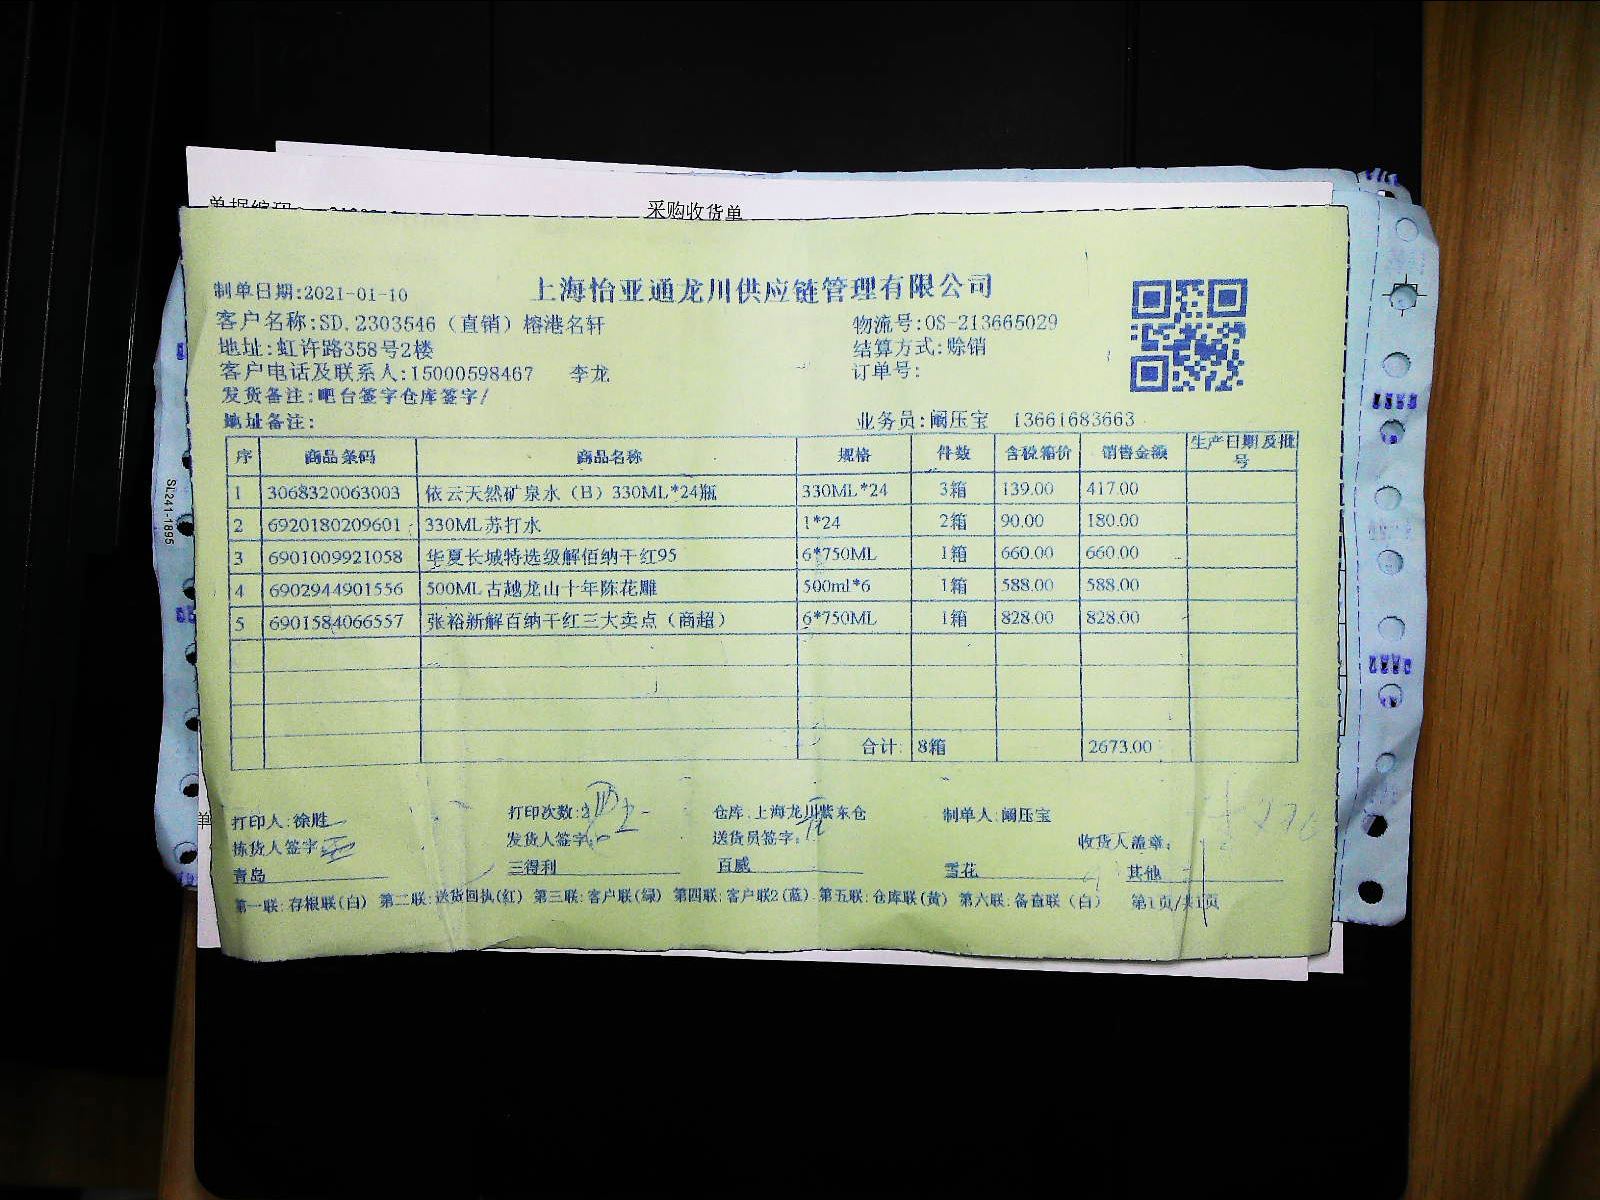 采购收货单
上海怡亚通龙川供应链管理有限公司
制单日期:2021-01-10
客户名称:SD.2303546（直销）榕港名轩 物流号:OS-213665029
地址:虹许路358号2楼 结算方式:赊销
客户电话及联系人:15000598467 李龙 订单号:
发货备注:吧台签字仓库签字/
地址备注: 业务员:阚压宝 13661683663
序 商品条码 商品名称 规格 件数 含税箱价 销售金额 生产日期及批号
1 3068320063003 依云天然矿泉水（B）330ML*24瓶 330ML*24 3箱 139.00 417.00
2 6920180209601 330ML苏打水 1*24 2箱 90.00 180.00
3 6901009921058 华夏长城特选级解佰纳干红95 6*750ML 1箱 660.00 660.00
4 6902944901556 500ML古越龙山十年陈花雕 500ml*6 1箱 588.00 588.00
5 6901584066557 张裕新解百纳干红三大卖点（商超） 6*750ML 1箱 828.00 828.00
合计: 8箱 2673.00
打印人:徐胜 打印次数:2 仓库:上海龙川紫东仓 制单人:阚压宝
拣货人签字: 发货人签字: 送货员签字: 收货人盖章:
青岛 三得利 百威 雪花 其他
第一联:存根联(白) 第二联:送货回执(红) 第三联:客户联(绿) 第四联:客户联2(蓝) 第五联:仓库联(黄) 第六联:备查联（白） 第1页/共1页
SL241-1895